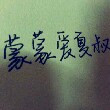 蒙蒙爱夏叔